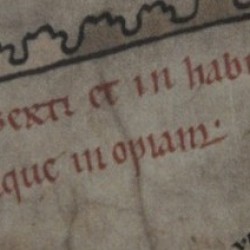 serti et in habi
que in opiam: